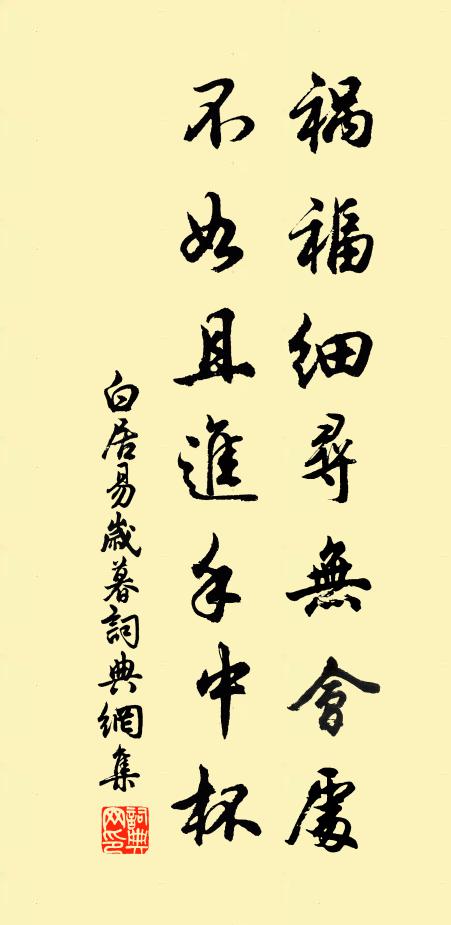 禍福細尋無會處
不如且進手中杯
白居易歲暮詞典網集
詞典網印